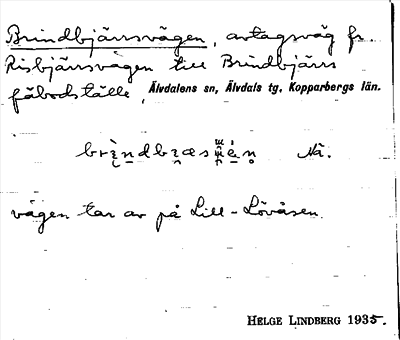 Brindbjärsvägen, avtagsväg fr.
Risbjärsvägen till Brindbjärs
fäbodställe, Älvdalens sn, Älvdals tg, Kopparbergs län.
Nä.
vägen tar av på Lill-Lövåsen.
HELGE LINDBERG 1935.